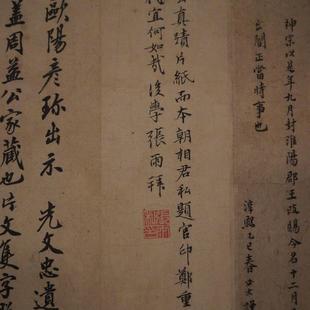 神宗以是年九月封淮陽郡王改賜今名十二月
出閤正當時事也
淳熙乙巳春
真蹟片紙而本朝相君私題官印鄭重
代宜何如哉後學張雨拜
歐陽彥珍出示 光文忠遺
蓋周益公家藏也片文隻字